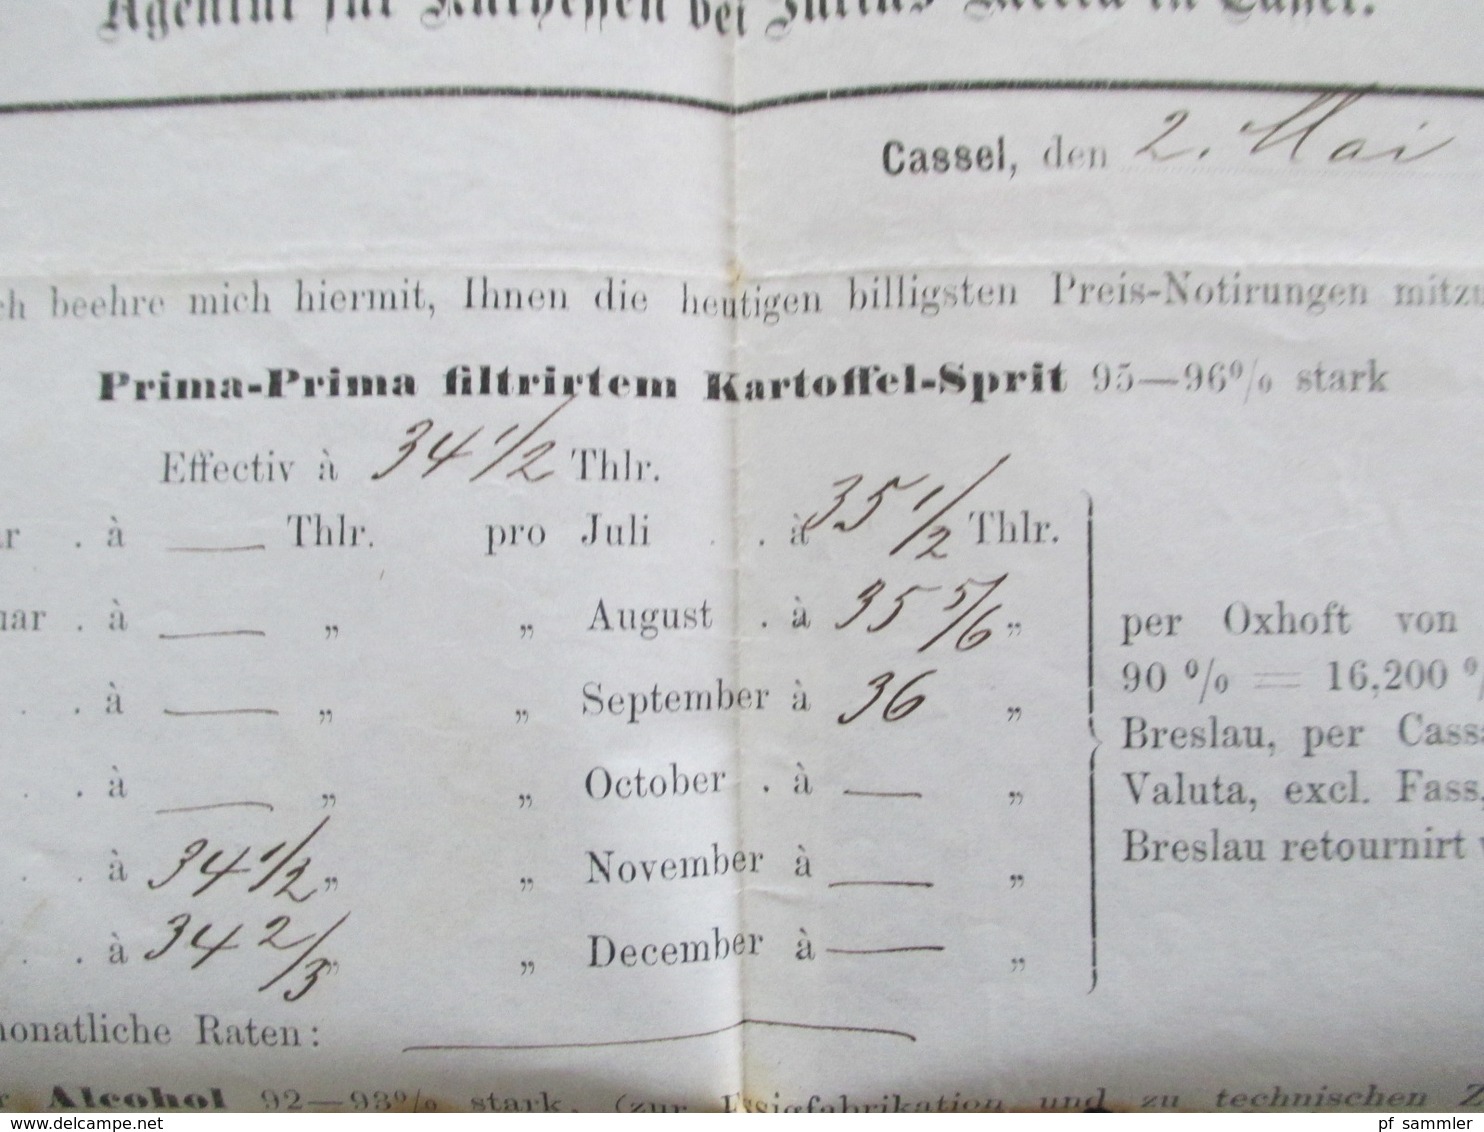 Agentur für Kurhessen bei Julius in Cassel.
Cassel, den 2. Mai
ch beehre mich hiermit, Ihnen die heutigen billigsten Preis-Notirungen mitzu
Prima-Prima filtrirtem Kartoffel-Sprit 95—96% stark
Effectiv à 34 1/2 Thlr.
ar . à — Thlr. pro Juli . . à 35 1/2 Thlr.
uar . à — „ „ August . à 35 5/6 „
. . à — „ „ September à 36 „
. . à — „ „ October . à — „
. . à 34 1/2 „ „ November à — „
. . à 34 2/3 „ „ December à — „
per Oxhoft von
90 % = 16,200 %
Breslau, per Cass
Valuta, excl. Fass,
Breslau retournirt
monatliche Raten: —
r Alcohol 92—93% stark, (zur Essigfabrikation und zu technischen Z
www.delcampe.net
pf_sammler